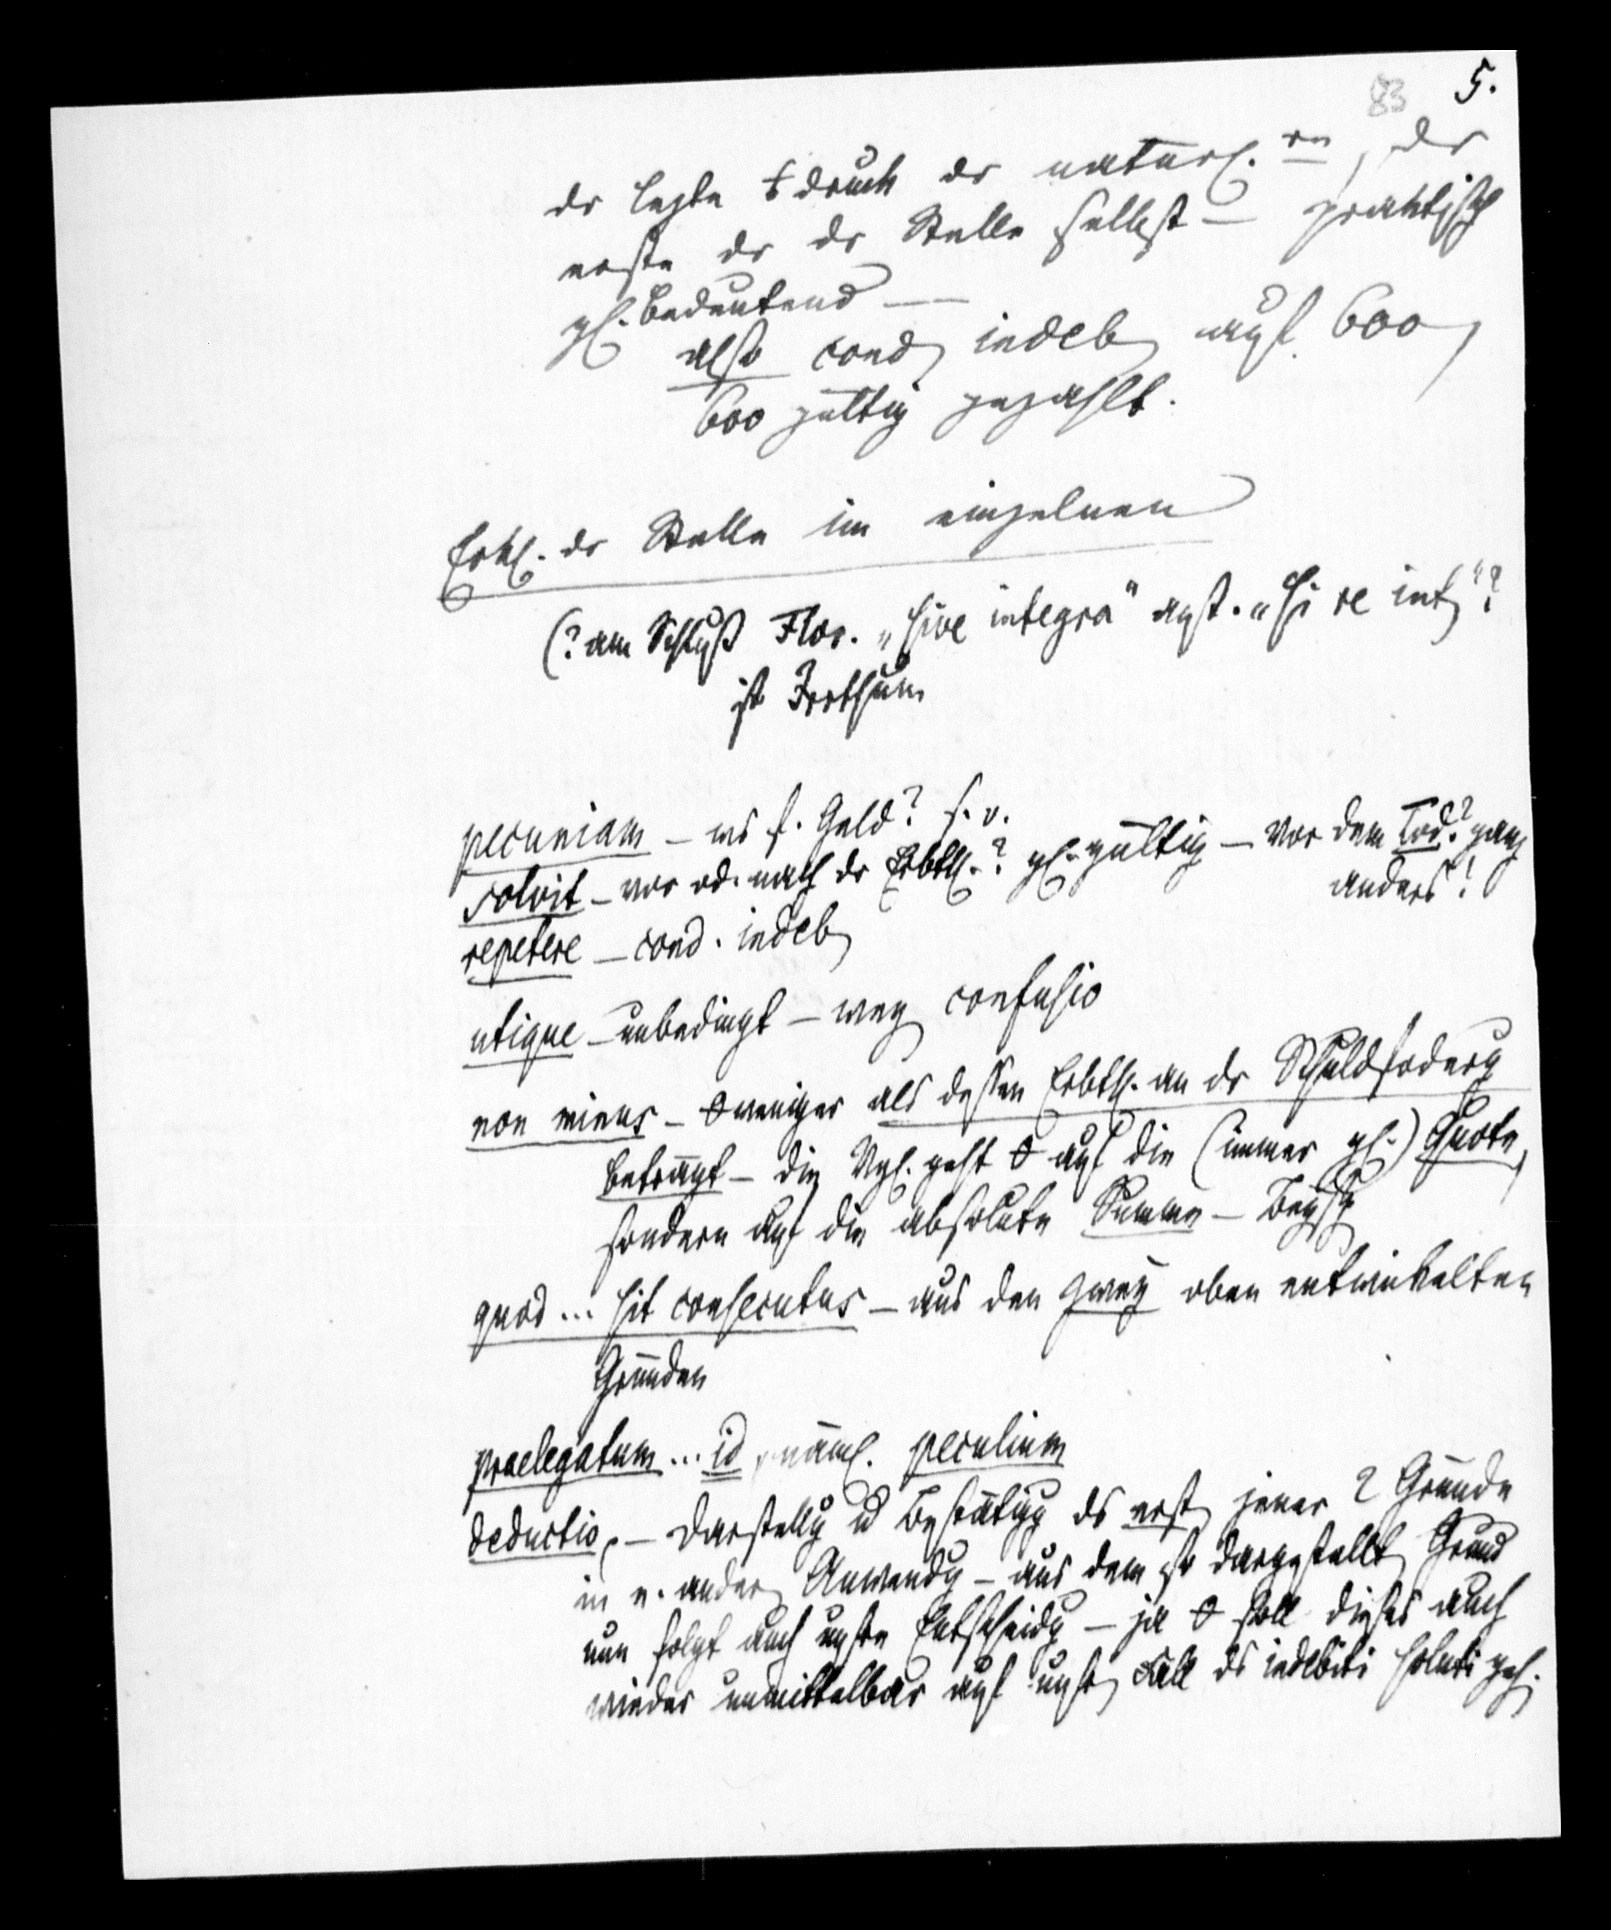 83 5.
dr letzte druck dr natürl. , dr
erste dr dr Stelle selbst — praktisch
gl. bedeutend —
also cond indeb auf 600
600 gültig gezahlt.
Erkl. dr Stelle im einzelnen
(? am Schluß Flor. „sive integra" anst. „si re int"?
ist Irrthum
pecuniam — ws f. Geld? s. v.
solvit — vor od. nach dr Erbth.? gl. gültig — vor dem Tod? ganz
anders!
repetere — cond. indeb
utique — unbedingt — weg confusio
non minus — 0 weniger als dessen Erbth. an dr Schuldfoderg
beträgt — die Vgl. geht 0 auf die (immer gl.) Quote,
sondern auf die absolute Summe — Beysp
quod ... sit consecutus — aus den zwey oben entwickelten
Gründen
praelegatum ... id, näml. peculium
deductio, — Darstellg u Bestätigg ds erst jener 2 Gründe
in e. ander Anwendg — aus dem so dargestellt Grund
nun folgt auch unsre Entscheidg — ja 0 soll dieses auch
wieder unmittelbar auf unsr Fall ds indebiti soluti geh.